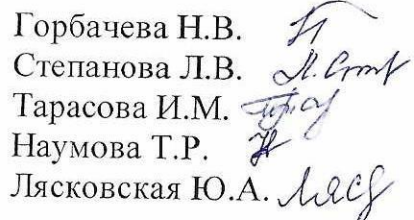 Горбачева Н.В.
Степанова Л.В.
Тарасова И.М.
Наумова Т.Р.
Лясковская Ю.А.